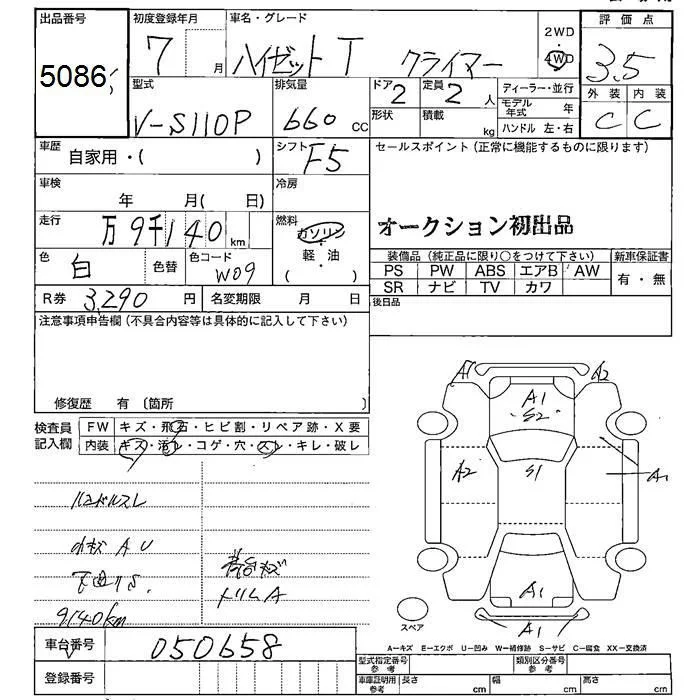 出品番号
5086
初度登録年月
7 月
車名・グレード
ハイゼットT クライマー
2WD
4WD
評価点
3.5
外装 内装
C C
型式
V-S110P
排気量
660 CC
ドア
2
定員
2 人
形状
積載
kg
ディーラー・並行
モデル年式 年
ハンドル 左・右
車歴
自家用・( )
シフト
F5
セールスポイント(正常に機能するものに限ります)
オークション初出品
車検
年 月( 日)
冷房
走行
万9千140 km
燃料
ガソリン
・
軽・油
・
( )
色
白
色替
色コード
W09
装備品(純正品に限り○をつけて下さい)
新車保証書
PS PW ABS エアB AW
SR ナビ TV カワ
有・無
R券 3,290 円
名変期限 月 日
後日品
注意事項申告欄(不具合内容等は具体的に記入して下さい)
修復歴 有 〔箇所 〕
検査員記入欄
FW キズ・飛石・ヒビ割・リペア跡・X要
内装 キズ・汚レ・コゲ・穴・スレ・キレ・破レ
ハンドルスレ
小キズ A U
下廻りS.
9140km
荷台キズ
トリムA
A1
A2
A1
S2
A2
S1
A1
A1
A1
スペア
A=キズ E=エクボ U=凹み W=補修跡 S=サビ C=腐食 XX=交換済
車台番号
050658
登録番号
型式指定番号
参考
類別区分番号
参考
車庫証明用
参考
長さ cm
幅 cm
高さ cm